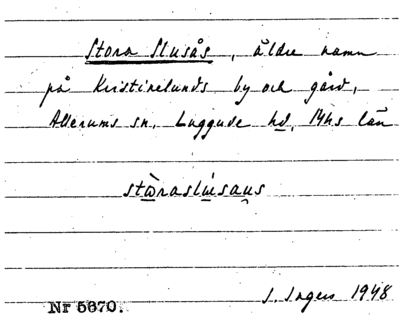 Stora Slusås, äldre namn
på Kristinelunds by och gård,
Allerums sn, Luggude hd, Mhs län
stœ̀raslúsaus
I. Ingers 1948
Nr 5670.